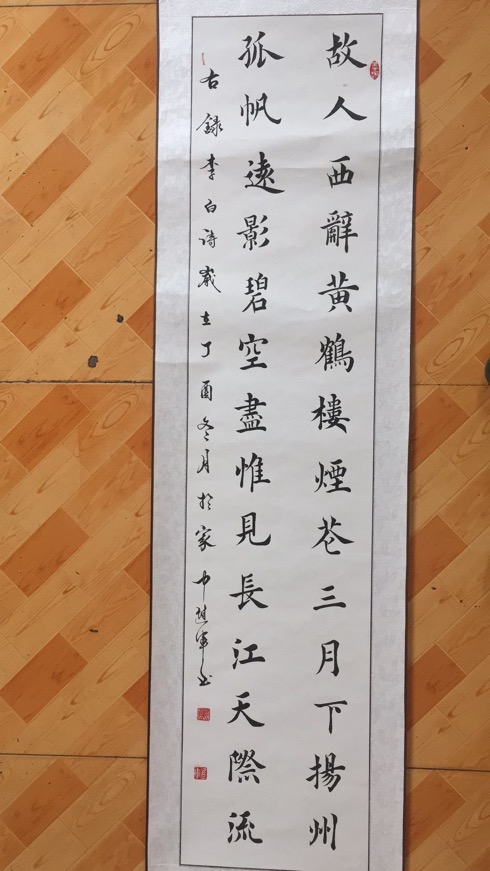 故人西辭黃鶴樓煙花三月下揚州
孤帆遠影碧空盡惟見長江天際流
右録李白詩歲在丁酉冬月於家中進軍书